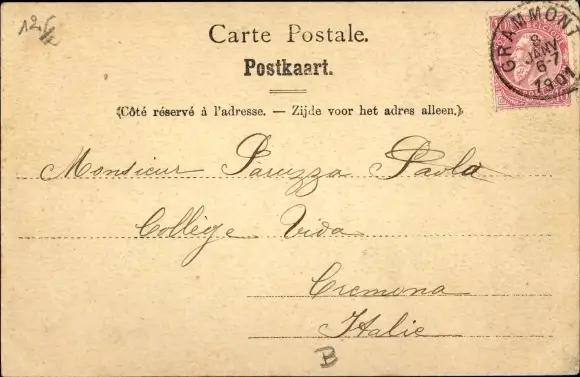 Carte Postale.
Postkaart.
(Côté réservé à l'adresse. — Zijde voor het adres alleen.)
GRAMMONT
8
JANV
6-7
1901
Monsieur Paruzza Paola
Collège Vida
Cremona
Italie
B